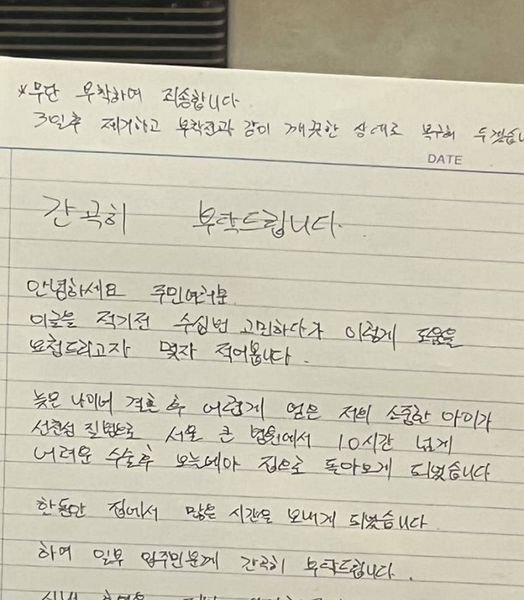 *무단 부착하여 죄송합니다.
3일후 제거하고 부착전과 같이 깨끗한 상태로 복구해 두겠습니
DATE
간곡히 부탁드립니다.
안녕하세요 주민여러분
이글을 적기전 수십번 고민하다가 이렇게 도움을
요청드리고자 몇자 적어봅니다.
늦은 나이에 결혼 후 어렵게 얻은 저희 소중한 아이가
선천성 질병으로 서울 큰 병원에서 10시간 넘게
어려운 수술후 오늘에야 집으로 돌아오게 되었습니다
한동안 집에서 많은 시간을 보내게 되었습니다
하여 일부 입주민분께 간곡히 부탁드립니다.